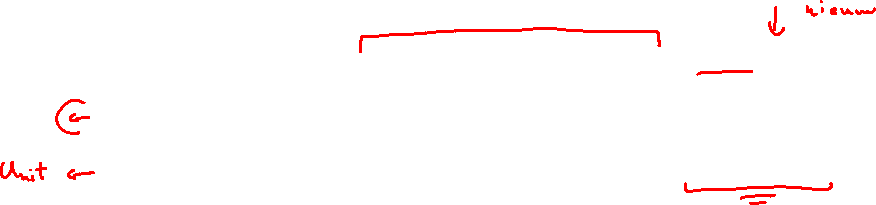 nieuw
Unit